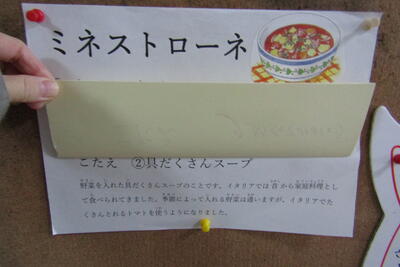 ミネストローネ
こたえ ②具だくさんスープ
野菜を入れた具だくさんスープのことです。イタリアでは昔から家庭料理とし
て食べられてきました。季節によって入れる野菜は違いますが、イタリアでた
くさんとれるトマトを使うようになりました。